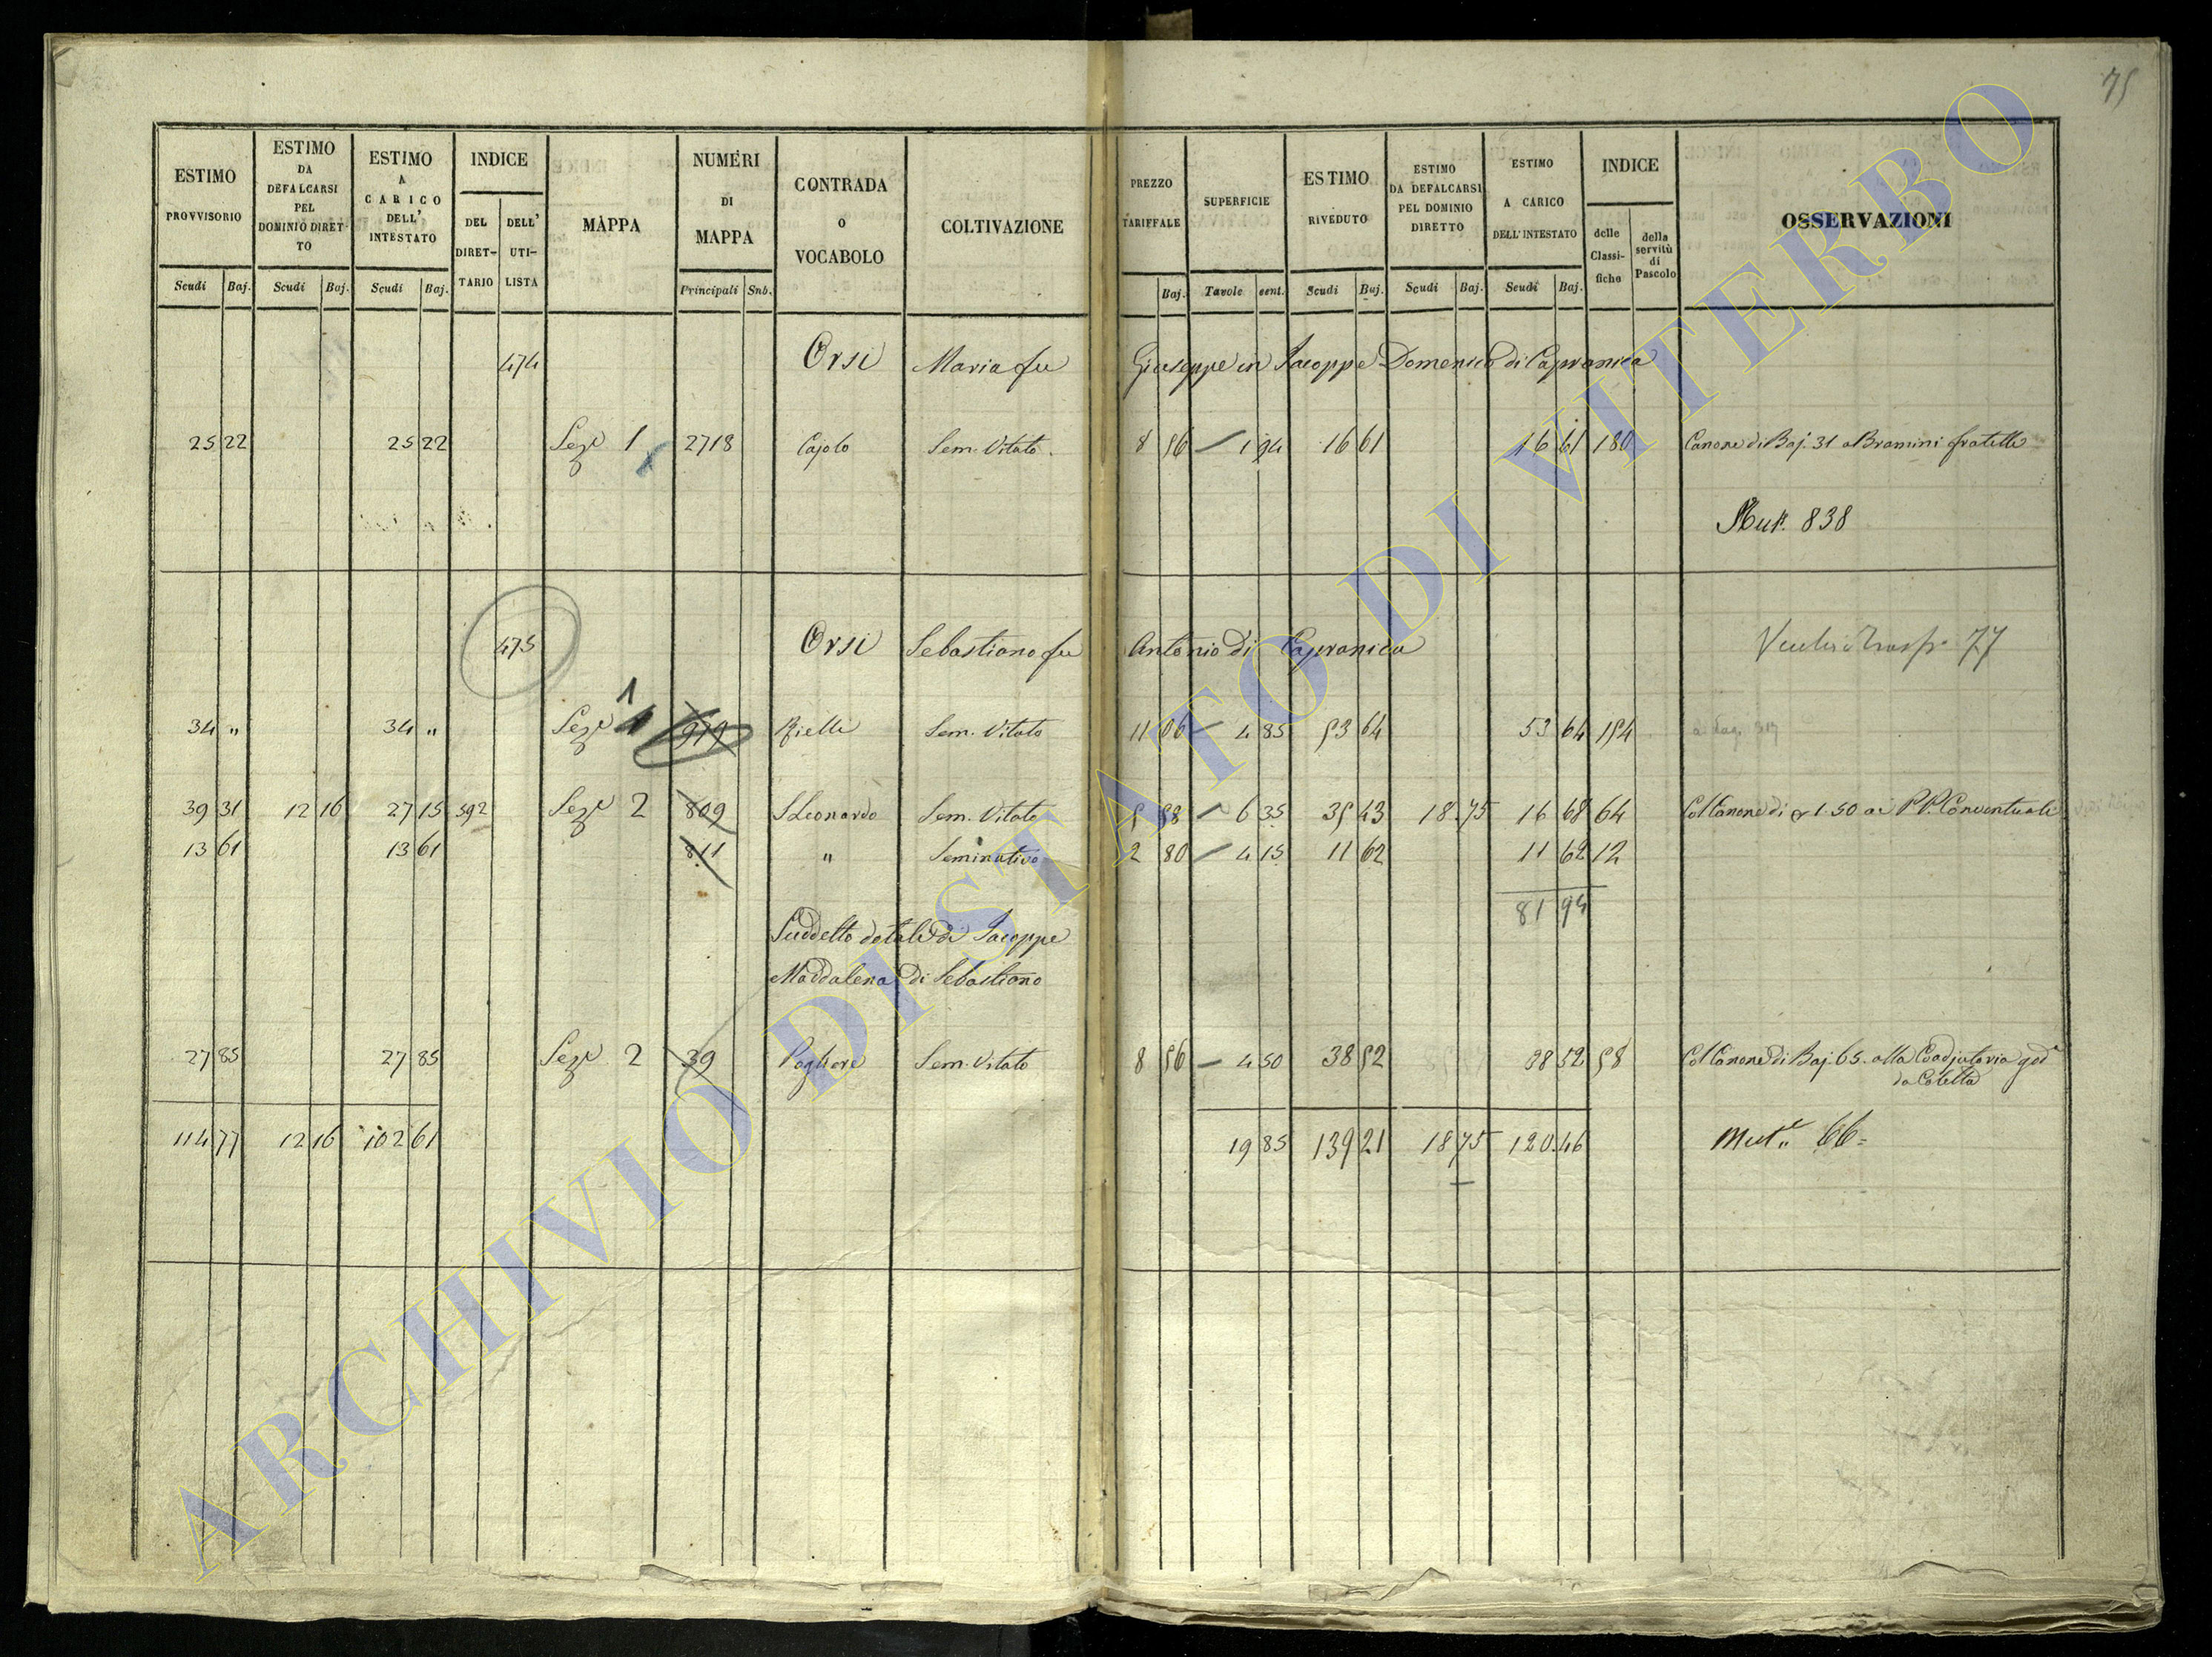 75
ESTIMO PROVVISORIO
Scudi Baj.
ESTIMO DA DEFALCARSI PEL DOMINIO DIRETTO
Scudi Baj.
ESTIMO A CARICO DELL' INTESTATO
Scudi Baj.
INDICE
DEL DIRETTARIO
DELL' UTILISTA
MAPPA
NUMERI DI MAPPA
Principali Sub.
CONTRADA O VOCABOLO
COLTIVAZIONE
PREZZO TARIFFALE
Baj.
SUPERFICIE
Tavole cent.
ESTIMO RIVEDUTO
Scudi Baj.
ESTIMO DA DEFALCARSI PEL DOMINIO DIRETTO
Scudi Baj.
ESTIMO A CARICO DELL' INTESTATO
Scudi Baj.
INDICE
delle Classifiche
della servitù di Pascolo
OSSERVAZIONI
474 Orsi Maria fu Giuseppe in Jacoppe Domenico di Capranica
25 22 25 22 Seze 1 2718 Cajolo Sem. Vitato. 8 56 1 94 16 61 16 61 180 Canone di Baj. 31 a Bramini fratelli
Mut. 838
475 Orsi Sebastiano fu Antonio di Capranica 77
1
34 " 34 " Seze 1 979 Sem. Vitato 11 06 4 85 53 64 53 64 154
39 31 12 16 27 15 592 Seze 2 809 S Leonardo Sem. Vitato 5 58 6 35 35 43 18.75 16 68 64 Col Canone di 1.50 ai P.P. Conventuali
13 61 13 61 811 " Seminativo 2 80 4 15 11 62 11 62 12
81 94
Suddetto dotale di Jacoppe
Maddalena di Sebastiano
27 85 27 85 Seze 2 39 Pogliere Sem. Vitato 8 56 4 50 38 52 38 52 58 Col Canone di Baj. 65. alla Coadjutoria god
da Coletta
114 77 12 16 102 61 19 85 139 21 18 75 120.46 Mut. 66=
ARCHIVIO DI STATO DI VITERBO